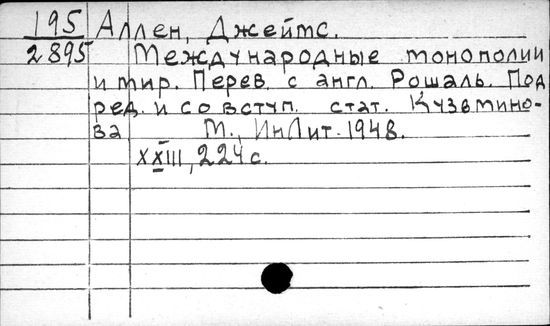 195 Аллен, Джеймс.
2895 Международные монополии
и мир. Перев. с англ. Рошаль. Под
ред. и со вступ. стат. Кузьмино-
ва М., ИнЛит. 1948.
XXIII, 224 с.